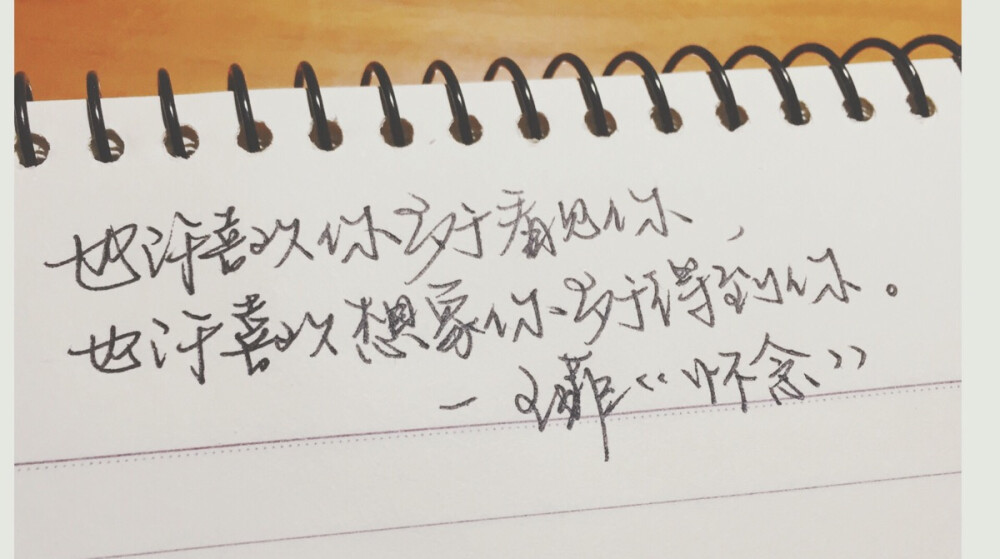 也许喜欢你多于看见你，
也许喜欢想象你多于得到你。
—王菲《怀念》